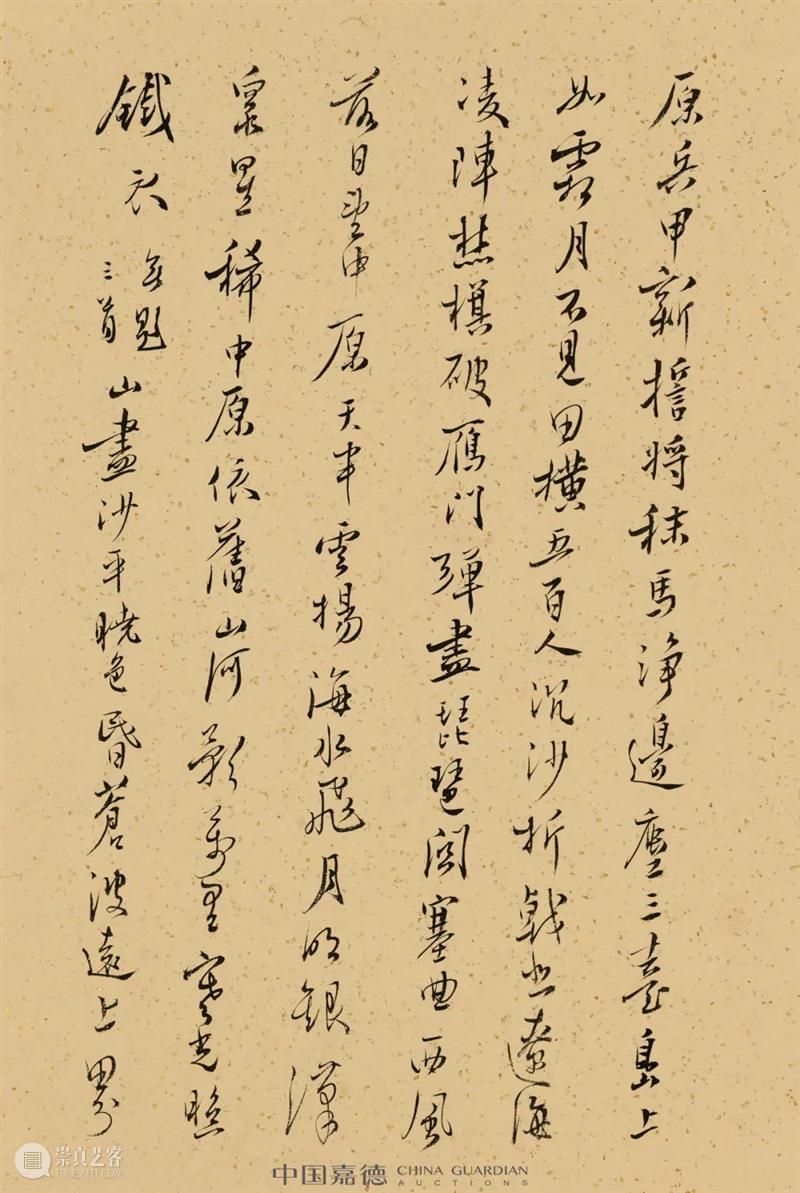 原兵甲新擐将秣馬浄邊塵三臺島上
如霜月不見田横五百人沉沙折戟悲遼海
凌陣 横破雁门弹盡琵琶関塞曲西風
落日望中原天半雲揚海水飛月明銀漢
衆星稀中原依舊山河影萬里寒光照
鐵衣 無題三首 山盡沙平曉色昏蒼波遠上
中国嘉德 CHINA GUARDIAN AUCTIONS
崇真艺客